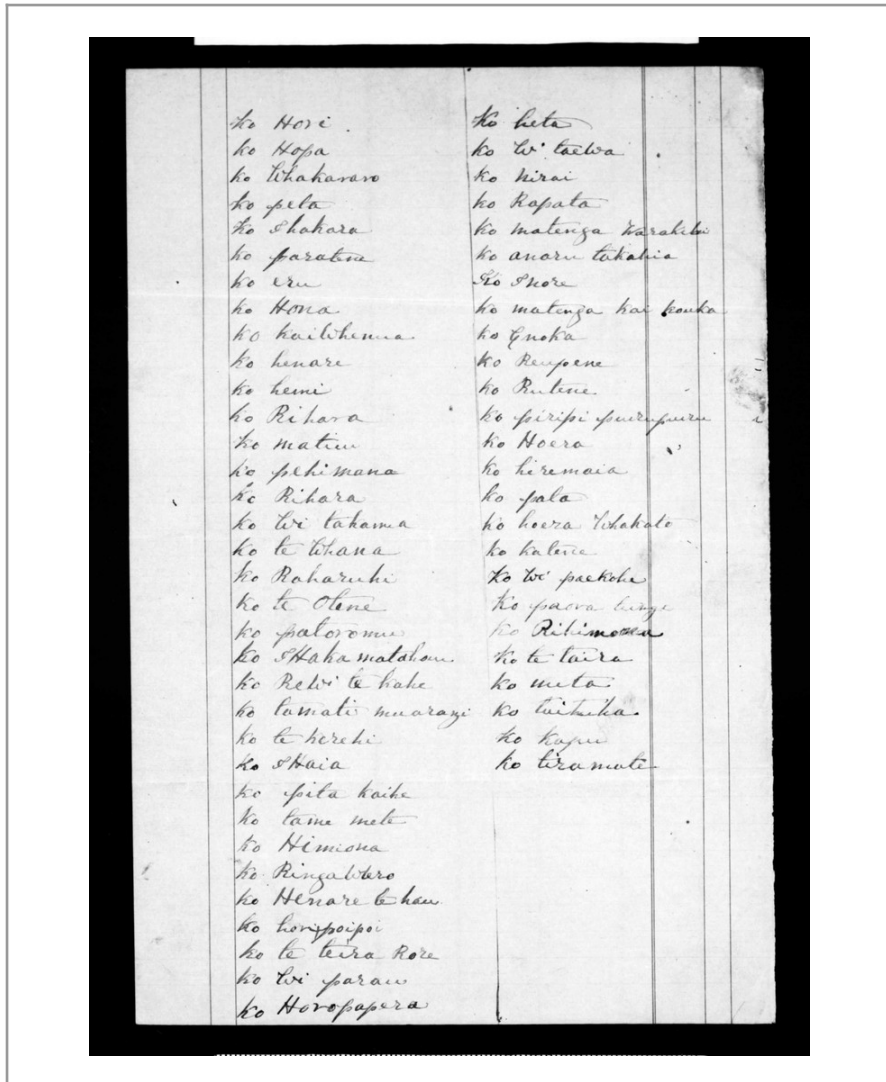 ko Hori
ko Hopa
ko Whakararo
ko peta
ko Ihakara
ko paratene
ko eru
ko Hona
ko kaiwhenua
ko henare
ko hemi
ko Rihara
ko matiu
ko pehimana
ko Rihara
ko Wi takamua
ko te Whana
ko Raharuhi
ko te Otene
ko patoromu
ko IHaka matahau
ko Rewi te kahe
ko tamati muarangi
ko te kerehi
ko IHaia
ko pita kaihe
ko tame mete
ko Himiona
ko Ringawero
ko Henare te hau
ko hori poipoi
ko te teira Rore
ko Wi parau
ko Horopapera
ko heta
ko Wi taewa
ko Nirai
ko Rapata
ko matenga
ko anaru takahia
ko Inore
ko matenga kai kouka
ko Enoka
ko Reupene
ko Rutene
ko piripi purupuru
ko Hoera
ko hiremaia
ko pala
ko hoera Whakato
ko katene
ko Wi paekohe
ko paora
ko Rihimona
ko te taira
ko meta
ko taituha
ko Kapu
ko tiramate